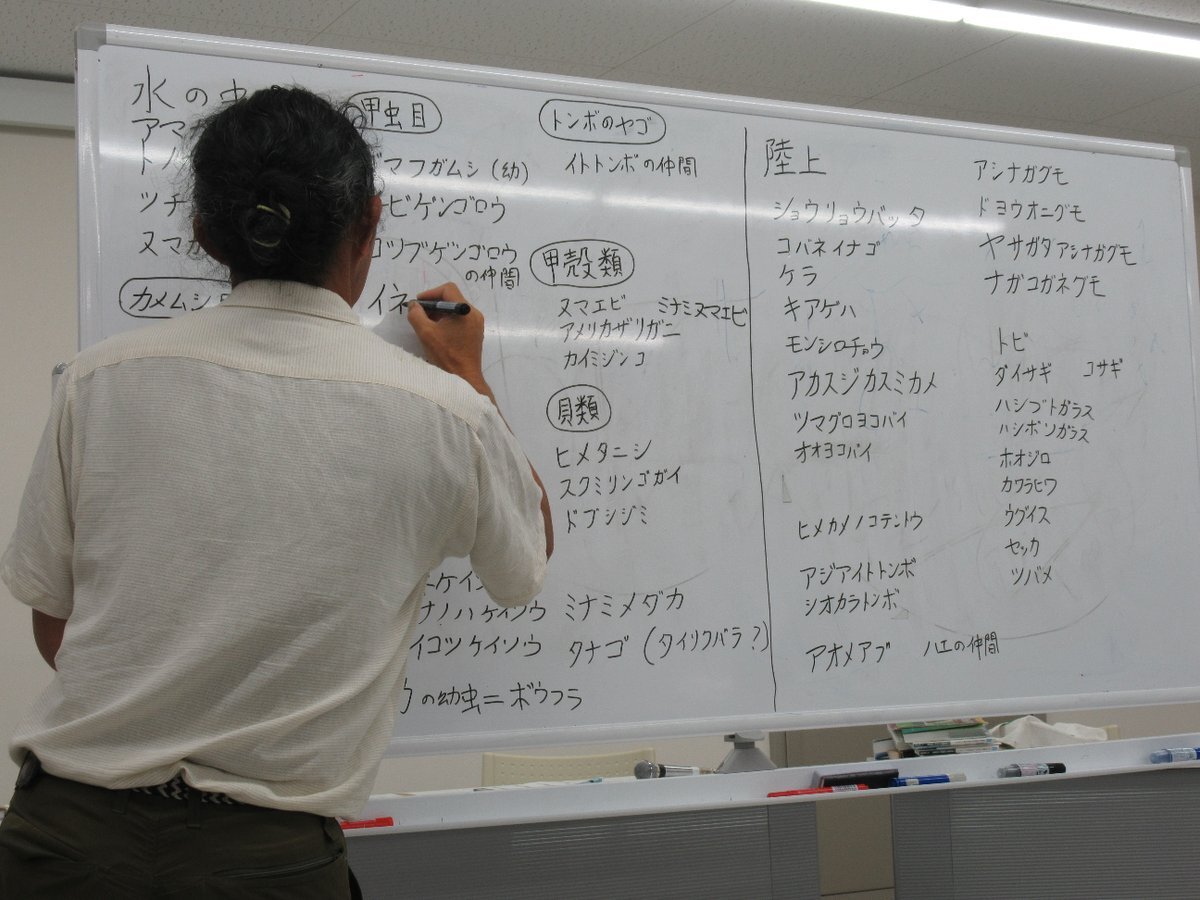 水の虫
アマ
ツチ
ヌマガ
カメムシ
甲虫目
マフガムシ(幼)
ビゲンゴロウ
コツブゲンゴロウ
の仲間
イネ
ケイソ
ナノハケイソウ
イコツケイソウ
の幼虫=ボウフラ
トンボのヤゴ
イトトンボの仲間
甲殻類
ヌマエビ ミナミヌマエビ
アメリカザリガニ
カイミジンコ
貝類
ヒメタニシ
スクミリンゴガイ
ドブシジミ
ミナミメダカ
タナゴ(タイリクバラ?)
陸上
ショウリョウバッタ
コバネイナゴ
ケラ
キアゲハ
モンシロチョウ
アカスジカスミカメ
ツマグロヨコバイ
オオヨコバイ
ヒメカメノコテントウ
アジアイトトンボ
シオカラトンボ
アオメアブ ハエの仲間
アシナガグモ
ドヨウオニグモ
ヤサガタアシナガグモ
ナガコガネグモ
トビ
ダイサギ コサギ
ハシブトガラス
ハシボソガラス
ホオジロ
カワラヒワ
ウグイス
セッカ
ツバメ